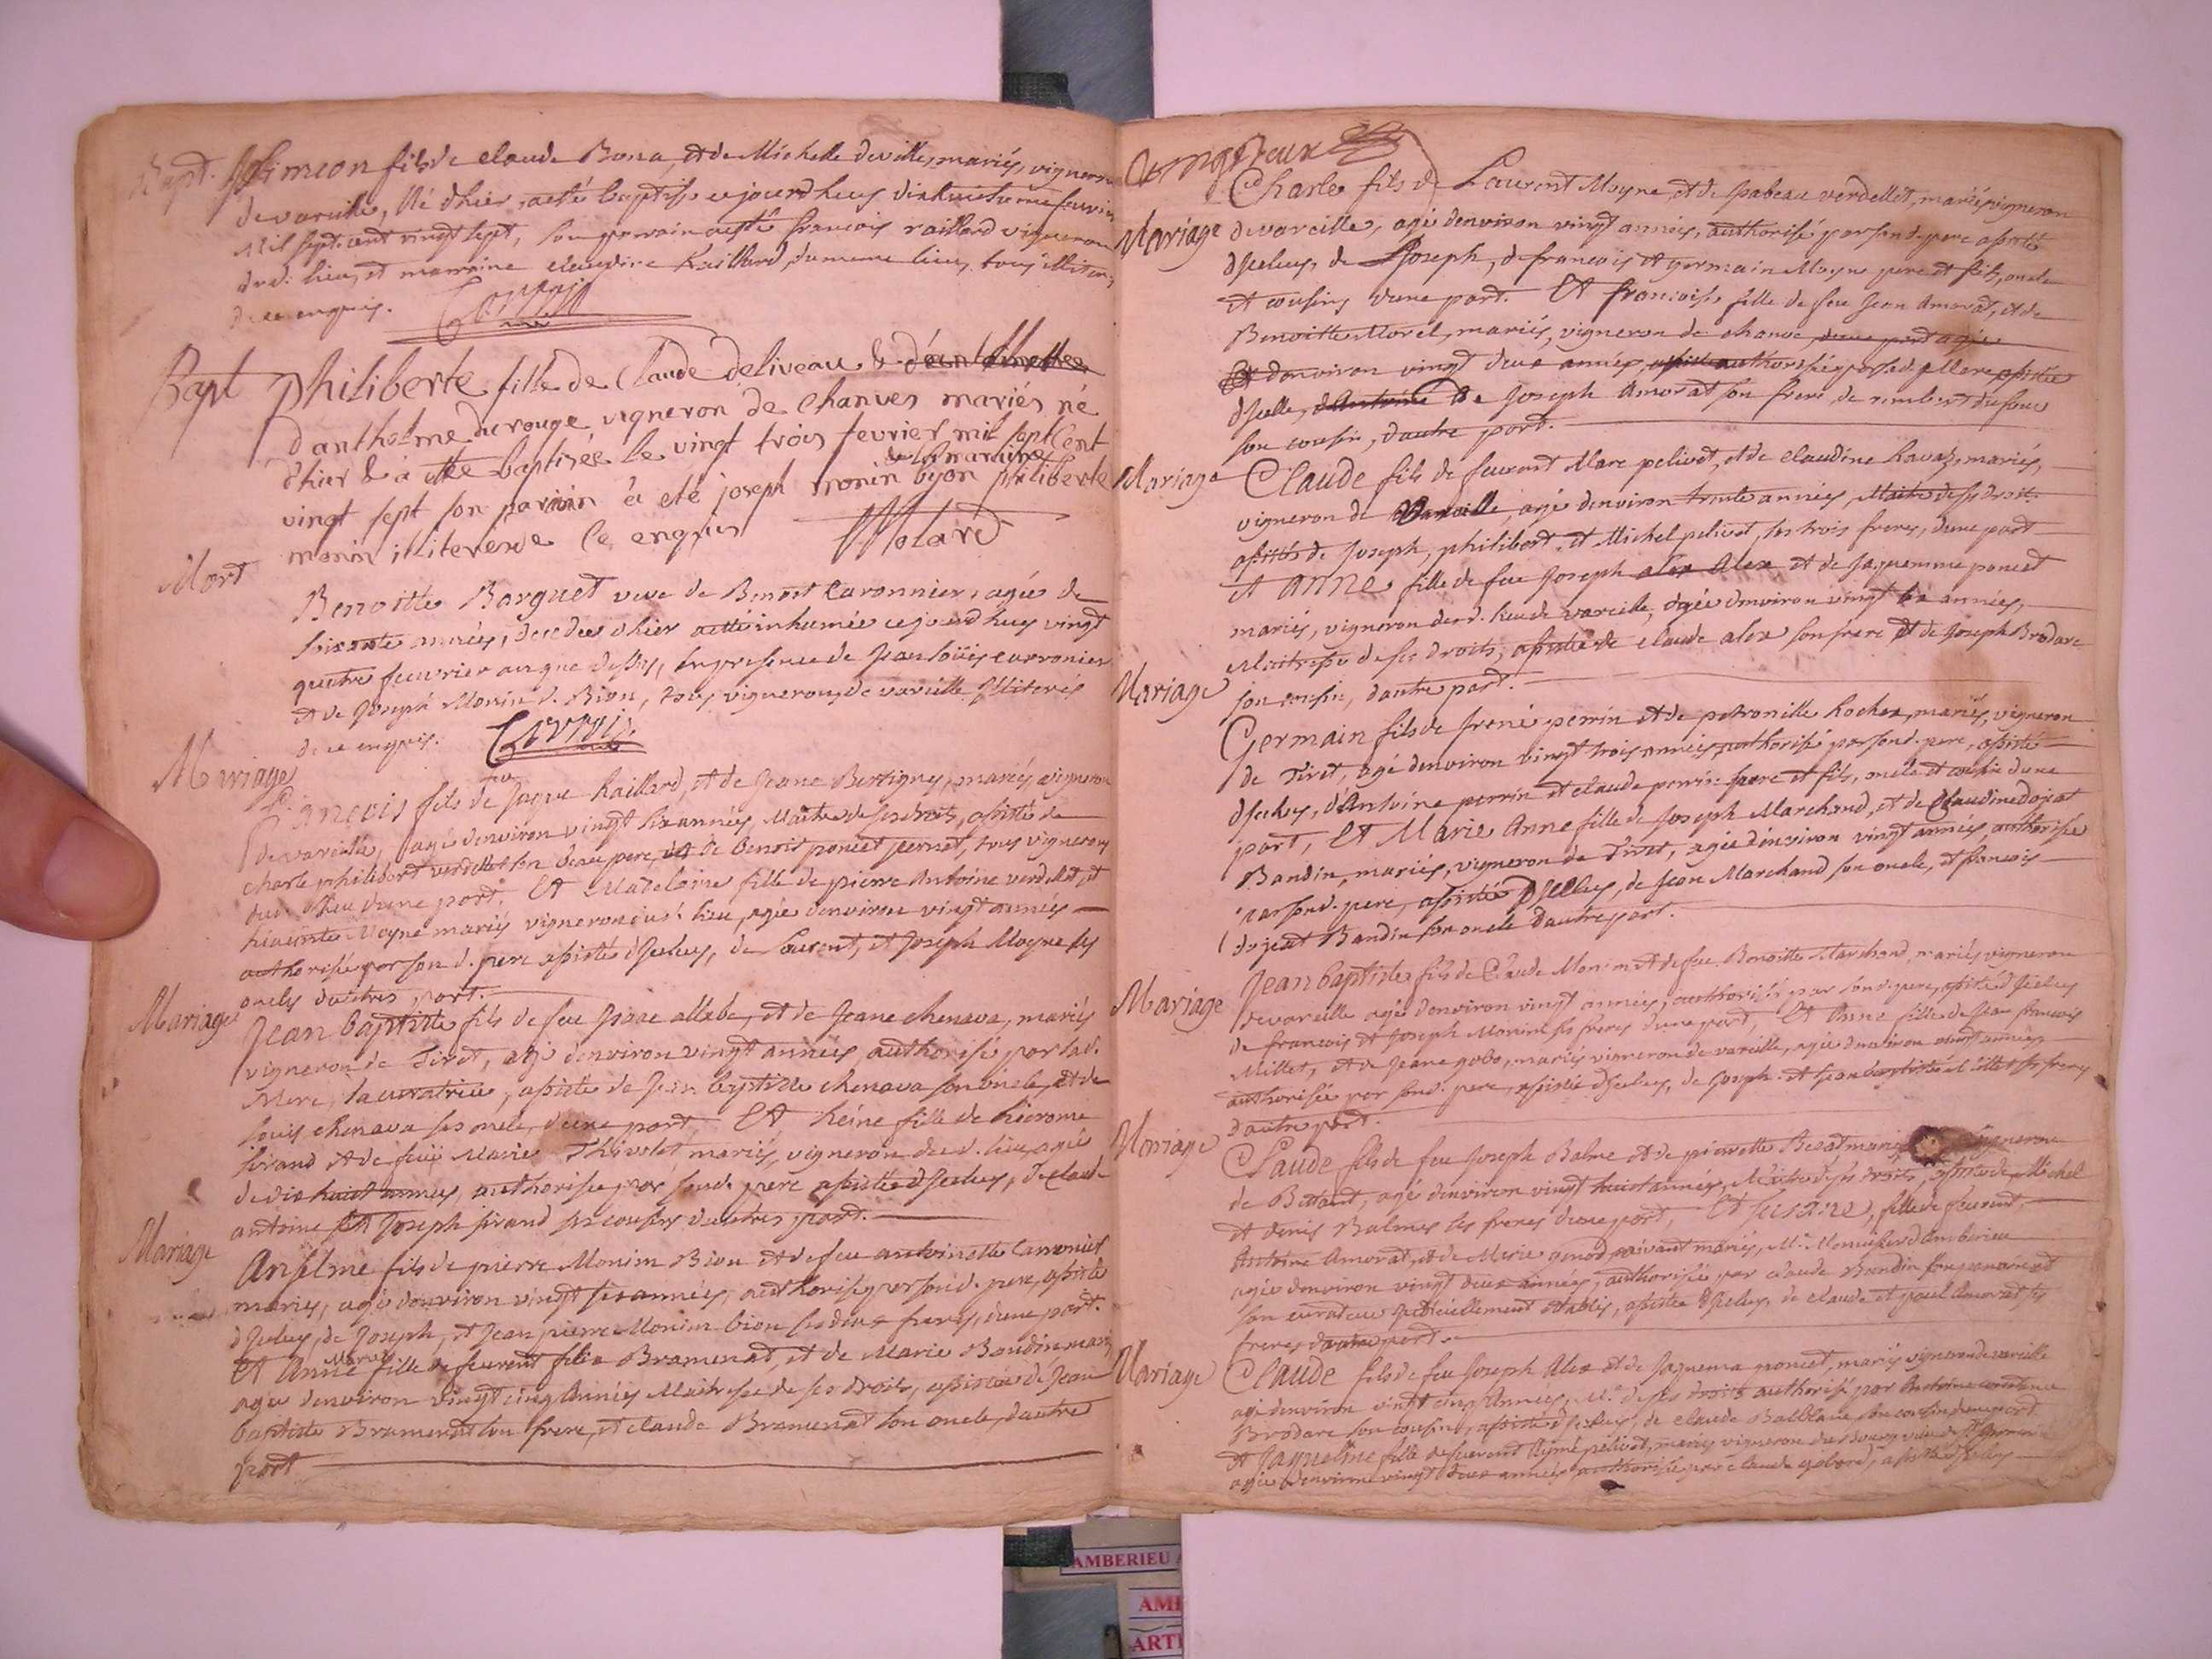 Bapt. Simeon fils de claude Bona, et de Michelle deville, mariés, vigneron
de vareille, Né d'hier, a eté baptisé cejourdhuy dixhuitieme feuvrier
Mil sept cent vingt sept, son parrain a esté francois raillard vigneron
dud. lieu, et marraine claudine Raillard, du meme lieu, tous illiterés
de ce enquis.
Bapt philiberte fille de Claude deliveau &
d'antholme durouge vigneron de Chanves mariés né
d'hier & à etté baptisée le vingt trois fevrier mil sept cent
vingt sept son parrain à eté joseph monin byon & la marraine philiberte
monin illiteres de ce enquis Molard
Mort
Benoitte Barguet veve de Benoit Carronnier, agée de
soixante années, decedée d'hier a eté inhumée cejourdhuy vingt
quatre feuvrier an que dessus, en presence de Jean loüis carronier
et de Joseph Monin d. Bion, tous vignerons de vareille illiterés
de ce enquis.
Mariage
Francois fils de feu Jaque Raillard, et de Jeane Bertigny, mariés, vigneron
de vareille, agé denviron vingt six années, Maitre de ses droits, assisté de
charle philibert verdellet son beau pere, et de benoit poncet pernet, tous vignerons
dud. lieu dune part. Et Madelaine fille de pierre Antoine verdellet, et
hiacinte Moyne mariés vigneron dud. lieu, agée denviron vingt années
authorisée par son d. pere assistée d'Jceluy, de Laurent, et Joseph Moyne ses
oncles dautres part.
Mariage
Jean baptiste fils de feu Isaac allabe, et de Jeane chenava, mariés
vigneron de Tiret, agé denviron vingt années authorisé par sad.
Mere, sa curatrice, assisté de Jean baptiste chenava son oncle, et de
louis chenava ses oncle, dune part Et Reine fille de hierome
sirand et de feüe Marie Thivolet, mariés, vigneron dud. lieu, agée
de dix huict années, authorisée par sond. pere assistée d'Jceluy, de Claude
antoine et Joseph sirand ses cousins dautres part.
Mariage
Anselme fils de pierre Monin Bion et de feu antoinette Carronier
mariés, agé denviron vingt six années, authorisé par son d. pere, assisté
d'Jceluy, de Joseph, et Jean pierre Monin bion ses deux freres, dune part.
Et Anne Marie fille de feurent felix Bramerat, et de Marie Baudin mariés
agée denviron vingt cinq Années Maitresse de ses droits, assistée de Jean
baptiste Bramerat son frere, et claude Bramerat son oncle, dautre
part
vingt deux
Charle fils de Laurent Moyne, et de Jsabeau verdellet, mariés, vigneron
Mariage de vareille, agé denviron vingt années, authorisé par son d. pere assisté
d'Jceluy, de Joseph, de francois et germain Moyne pere et fils, oncle
et cousins dune part. Et francoise fille de feu Jean Amorat, et de
Benoitte Morel, mariés, vigneron de chanve dune part agée
denviron vingt deux années, authorisée par sad. Mere assistée
d'Jcelle, de Joseph Amorat son frere, de rembert dufour
son cousin, dautre part.
Mariage
Claude fils de feurent Marc pelivet, et de claudine Ravaz, mariés,
vigneron de Vareille, agé denviron trente années, Maitre de ses droits
assistés de Joseph, philibert, et Michel pelivet, ses trois freres, dune part
et anne fille de feu Joseph Alex et de Jaquemme poncet
mariés, vigneron dud. lieu de vareille, agée denviron vingt six années,
Maitresse de ses droits, assistée de claude alex son frere et de Joseph Brodare
son cousin, dautre part.
Mariage
Germain fils de frené perrin et de petronille Rochex, mariés, vigneron
de Tiret, agé denviron vingt trois années authorisé par sond. pere, assisté
d'Jceluy, d'Antoine perrin et claude perrin pere et fils, oncle et cousin dune
part, Et Marie Anne fille de Joseph Marchand, et de Claudine dojat
Bandin, mariés, vigneron de Tiret, agée denviron vingt années, authorisée
par sond. pere, assistée d'Jceluy, de Jean Marchand son oncle, et francois
dojeat Bandin son oncle dautre part.
Mariage
Jean baptiste fils de Claude Monin et de feu Benoitte Marchand, mariés vigneron
de vareille agé denviron vingt années, authorisé par sond. pere, assisté d'Jceluy
de francois et Joseph Monin ses freres dune part, Et Anne fille de Jean francois
Millet, et de Jeane gobo, mariés vigneron de vareille, agée denviron vingt années
authorisée par sond. pere, assistée d'Jceluy, de Joseph et Jean baptiste Millet ses freres
dautre part.
Mariage
Claude fils de feu Joseph Balme et de pierrette Besat mariés vigneron
de Bettant, agé denviron vingt huict années, Maitre de ses droits, assisté de Michel
et denis Balmes ses freres dune part, Et Susane, fille de feurent
Antoine Amorat, et de Marie genod, mariés, Me Menuisier d'amberieu
agée denviron vingt deux années, authorisée par claude Bandin
son curateur judiciellement etablis, assistée d'Jceluy, de claude et paul Amorat ses
freres dautre part.
Mariage
Claude fils de feu Joseph Alex et de Jaquema poncet, mariés vigneron de vareille
agé denviron vingt cinq Années, Me de ses droits authorisé par Antoine
Brodare son cousin, assisté d'Jceluy, de claude Balblanc son cousin dune part
et Jaqueline fille de feurent Aymé pelivet, mariés vigneron
agée denviron vingt deux années authorisée par claude gobord, assistée d'Jceluy
AMBERIEU
AM
ARTI